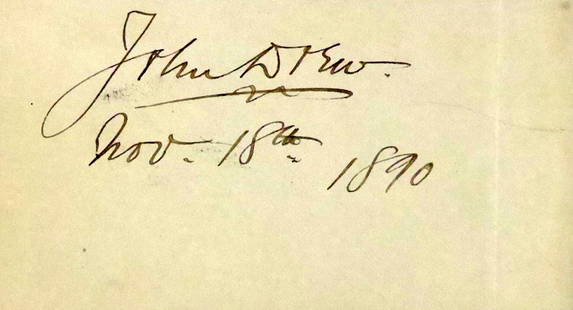 John Drew.
Nov. 18th 1890